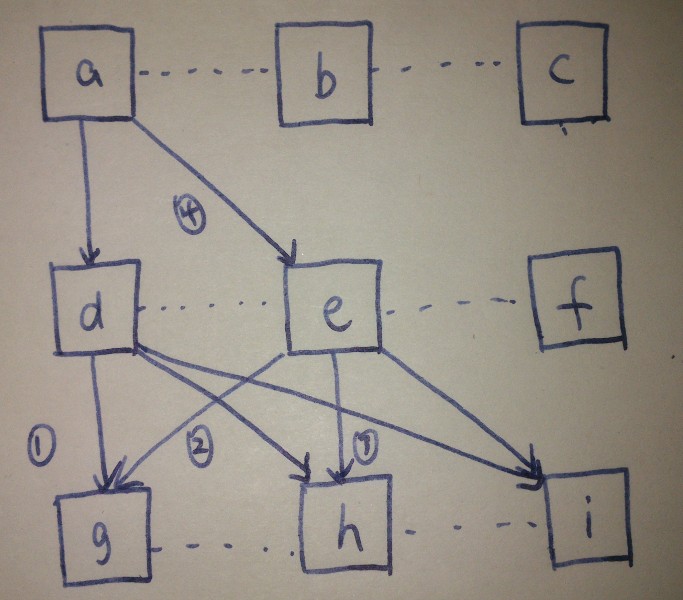 a b c
④
d e f
① ② ③
g h i